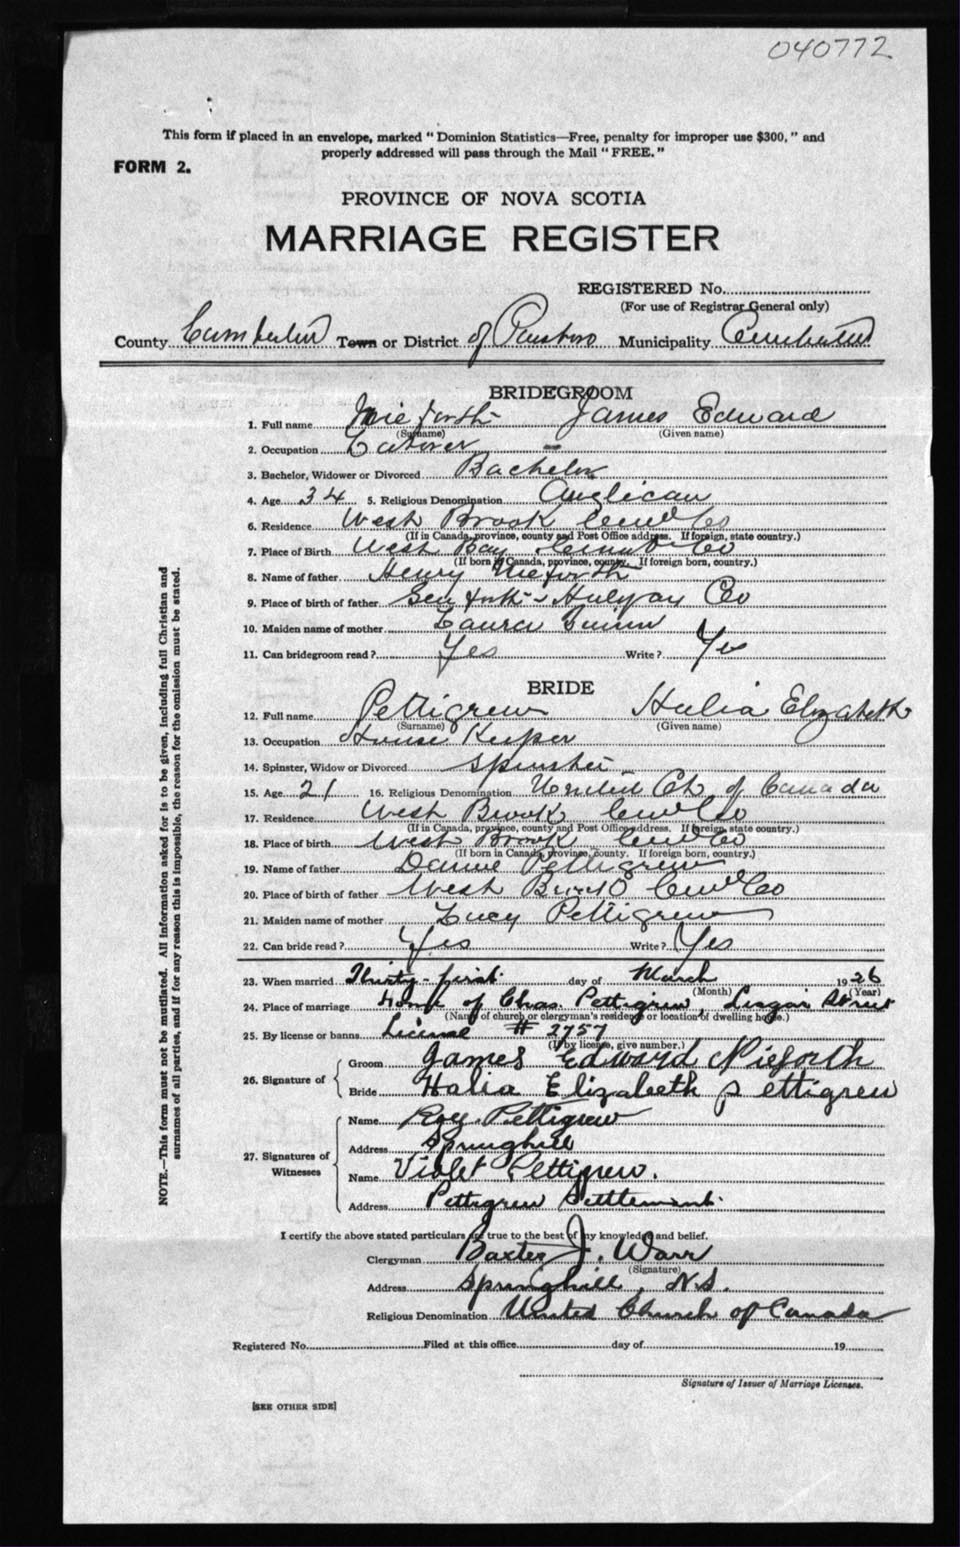 040772
This form if placed in an envelope, marked "Dominion Statistics—Free, penalty for improper use $300," and
properly addressed will pass through the Mail "FREE."
FORM 2.
PROVINCE OF NOVA SCOTIA
MARRIAGE REGISTER
REGISTERED No.
(For use of Registrar General only)
County Cumberland Town or District of Parrsboro Municipality Cumberland
BRIDEGROOM
1. Full name Nieforth James Edward
(Surname) (Given name)
2. Occupation
3. Bachelor, Widower or Divorced Bachelor
4. Age 34 5. Religious Denomination Anglican
6. Residence West Brook Cumb Co
(If in Canada, province, county and Post Office address. If foreign, state country.)
7. Place of Birth West Bay Cumb Co
(If born in Canada, province, county. If foreign born, country.)
8. Name of father Henry Nieforth
9. Place of birth of father Seaforth Halifax Co
10. Maiden name of mother Laura
11. Can bridegroom read? Yes Write? Yes
BRIDE
12. Full name Pettigrew Halia Elizabeth
(Surname) (Given name)
13. Occupation House Keeper
14. Spinster, Widow or Divorced Spinster
15. Age 21 16. Religious Denomination United Ch of Canada
17. Residence West Brook Cumb Co
(If in Canada, province, county and Post Office address. If foreign, state country.)
18. Place of birth West Brook Cumb Co
(If born in Canada, province, county. If foreign born, country.)
19. Name of father Pettigrew
20. Place of birth of father West Brook Cumb Co
21. Maiden name of mother Lucy Pettigrew
22. Can bride read? Yes Write? Yes
23. When married Thirty-first day of March 1926
(Month) (Year)
24. Place of marriage Home of Chas. Pettigrew, Lisgar Street
(Name of church or clergyman's residence or location of dwelling house.)
25. By license or banns License # 2757
(If by license, give number.)
26. Signature of Groom James Edward Nieforth
Bride Halia Elizabeth Pettigrew
27. Signatures of Witnesses Name Roy Pettigrew
Address Springhill
Name Violet Pettigrew.
Address Pettigrew Settlement.
I certify the above stated particulars are true to the best of my knowledge and belief.
Clergyman Baxter J. Warr
(Signature)
Address Springhill, N.S.
Religious Denomination United Church of Canada
Registered No. Filed at this office day of 19
Signature of Issuer of Marriage Licenses.
[SEE OTHER SIDE]
NOTE.—This form must not be mutilated. All information asked for is to be given, including full Christian and
surnames of all parties, and if for any reason this is impossible, the reason for the omission must be stated.